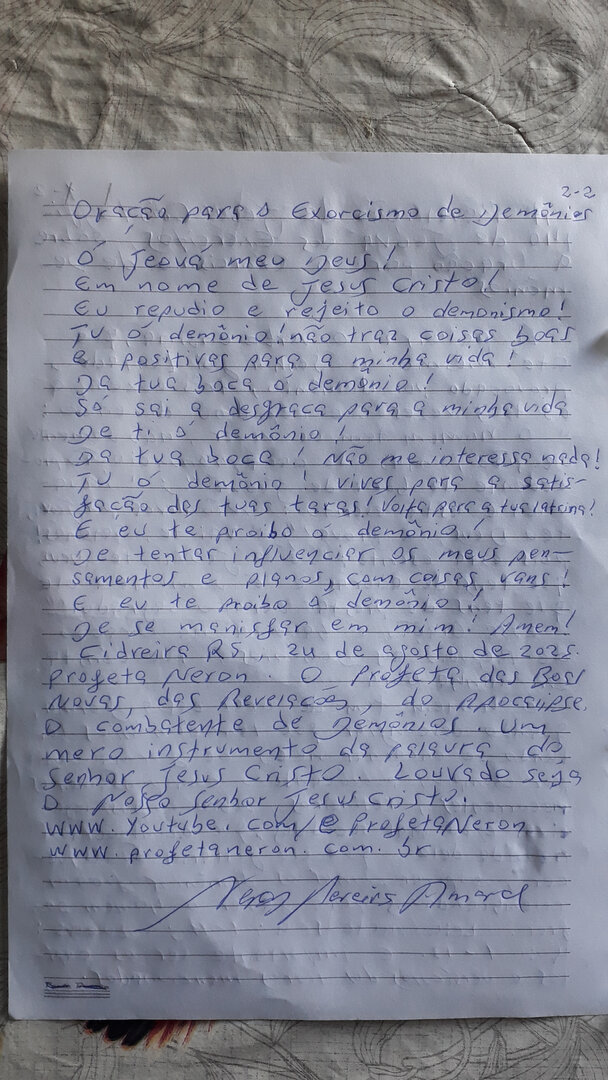 2-2
Oração para o Exorcismo de Demônios
Ó Jeová meu Deus!
Em nome de Jesus Cristo!
Eu repudio e rejeito o demonismo!
Tu ó demônio! não traz coisas boas
e positivas para a minha vida!
Da tua boca ó demônio!
Só sai a desgraça para a minha vida
De ti ó demônio!
Da tua boca! Não me interessa nada!
Tu ó demônio! vives para a satis-
fação das tuas taras! Volta para a tua latrina!
E eu te proibo ó demônio!
De tentar influenciar os meus pen-
samentos e planos, com coisas vans!
E eu te proibo ó demônio!
De se manisfar em mim! Amem!
Cidreira RS, 24 de agosto de 2025.
Profeta Neron. O Profeta das Boas
Novas, das Revelações, do Apocalipse.
O combatente de Demônios. Um
mero instrumento da palavra do
Senhor Jesus Cristo. Louvado seja
O Nosso Senhor Jesus Cristo.
www.youtube.com/@ProfetaNeron
www.profetaneron.com.br
Neron Pereira Amaral